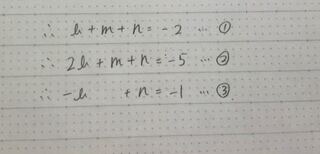 ∴ l + m + n = -2 … ①
∴ 2l + m + n = -5 … ②
∴ -l + n = -1 … ③